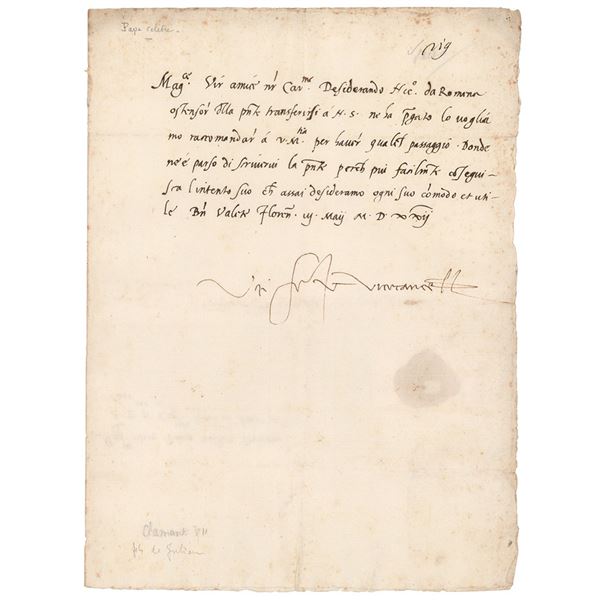 Papa celebre.
Mag.ce Vir amice nr Car.me Desiderando Nic.o da Romena
ostensor della pnte transferirsi á N. S. ne ha pgato lo voglia
mo racomandar á v. M.tia per haver qualch passaggio. Donde
ne é parso di scrivervi la pnte perch piu facilmte cosegui-
sca l'intento suo ch assai desideramo ogni suo cómodo et uti-
le Bn Valete Floren. vj Maij M. D xxij
Vicecancell
Clement VII
fils de Julien